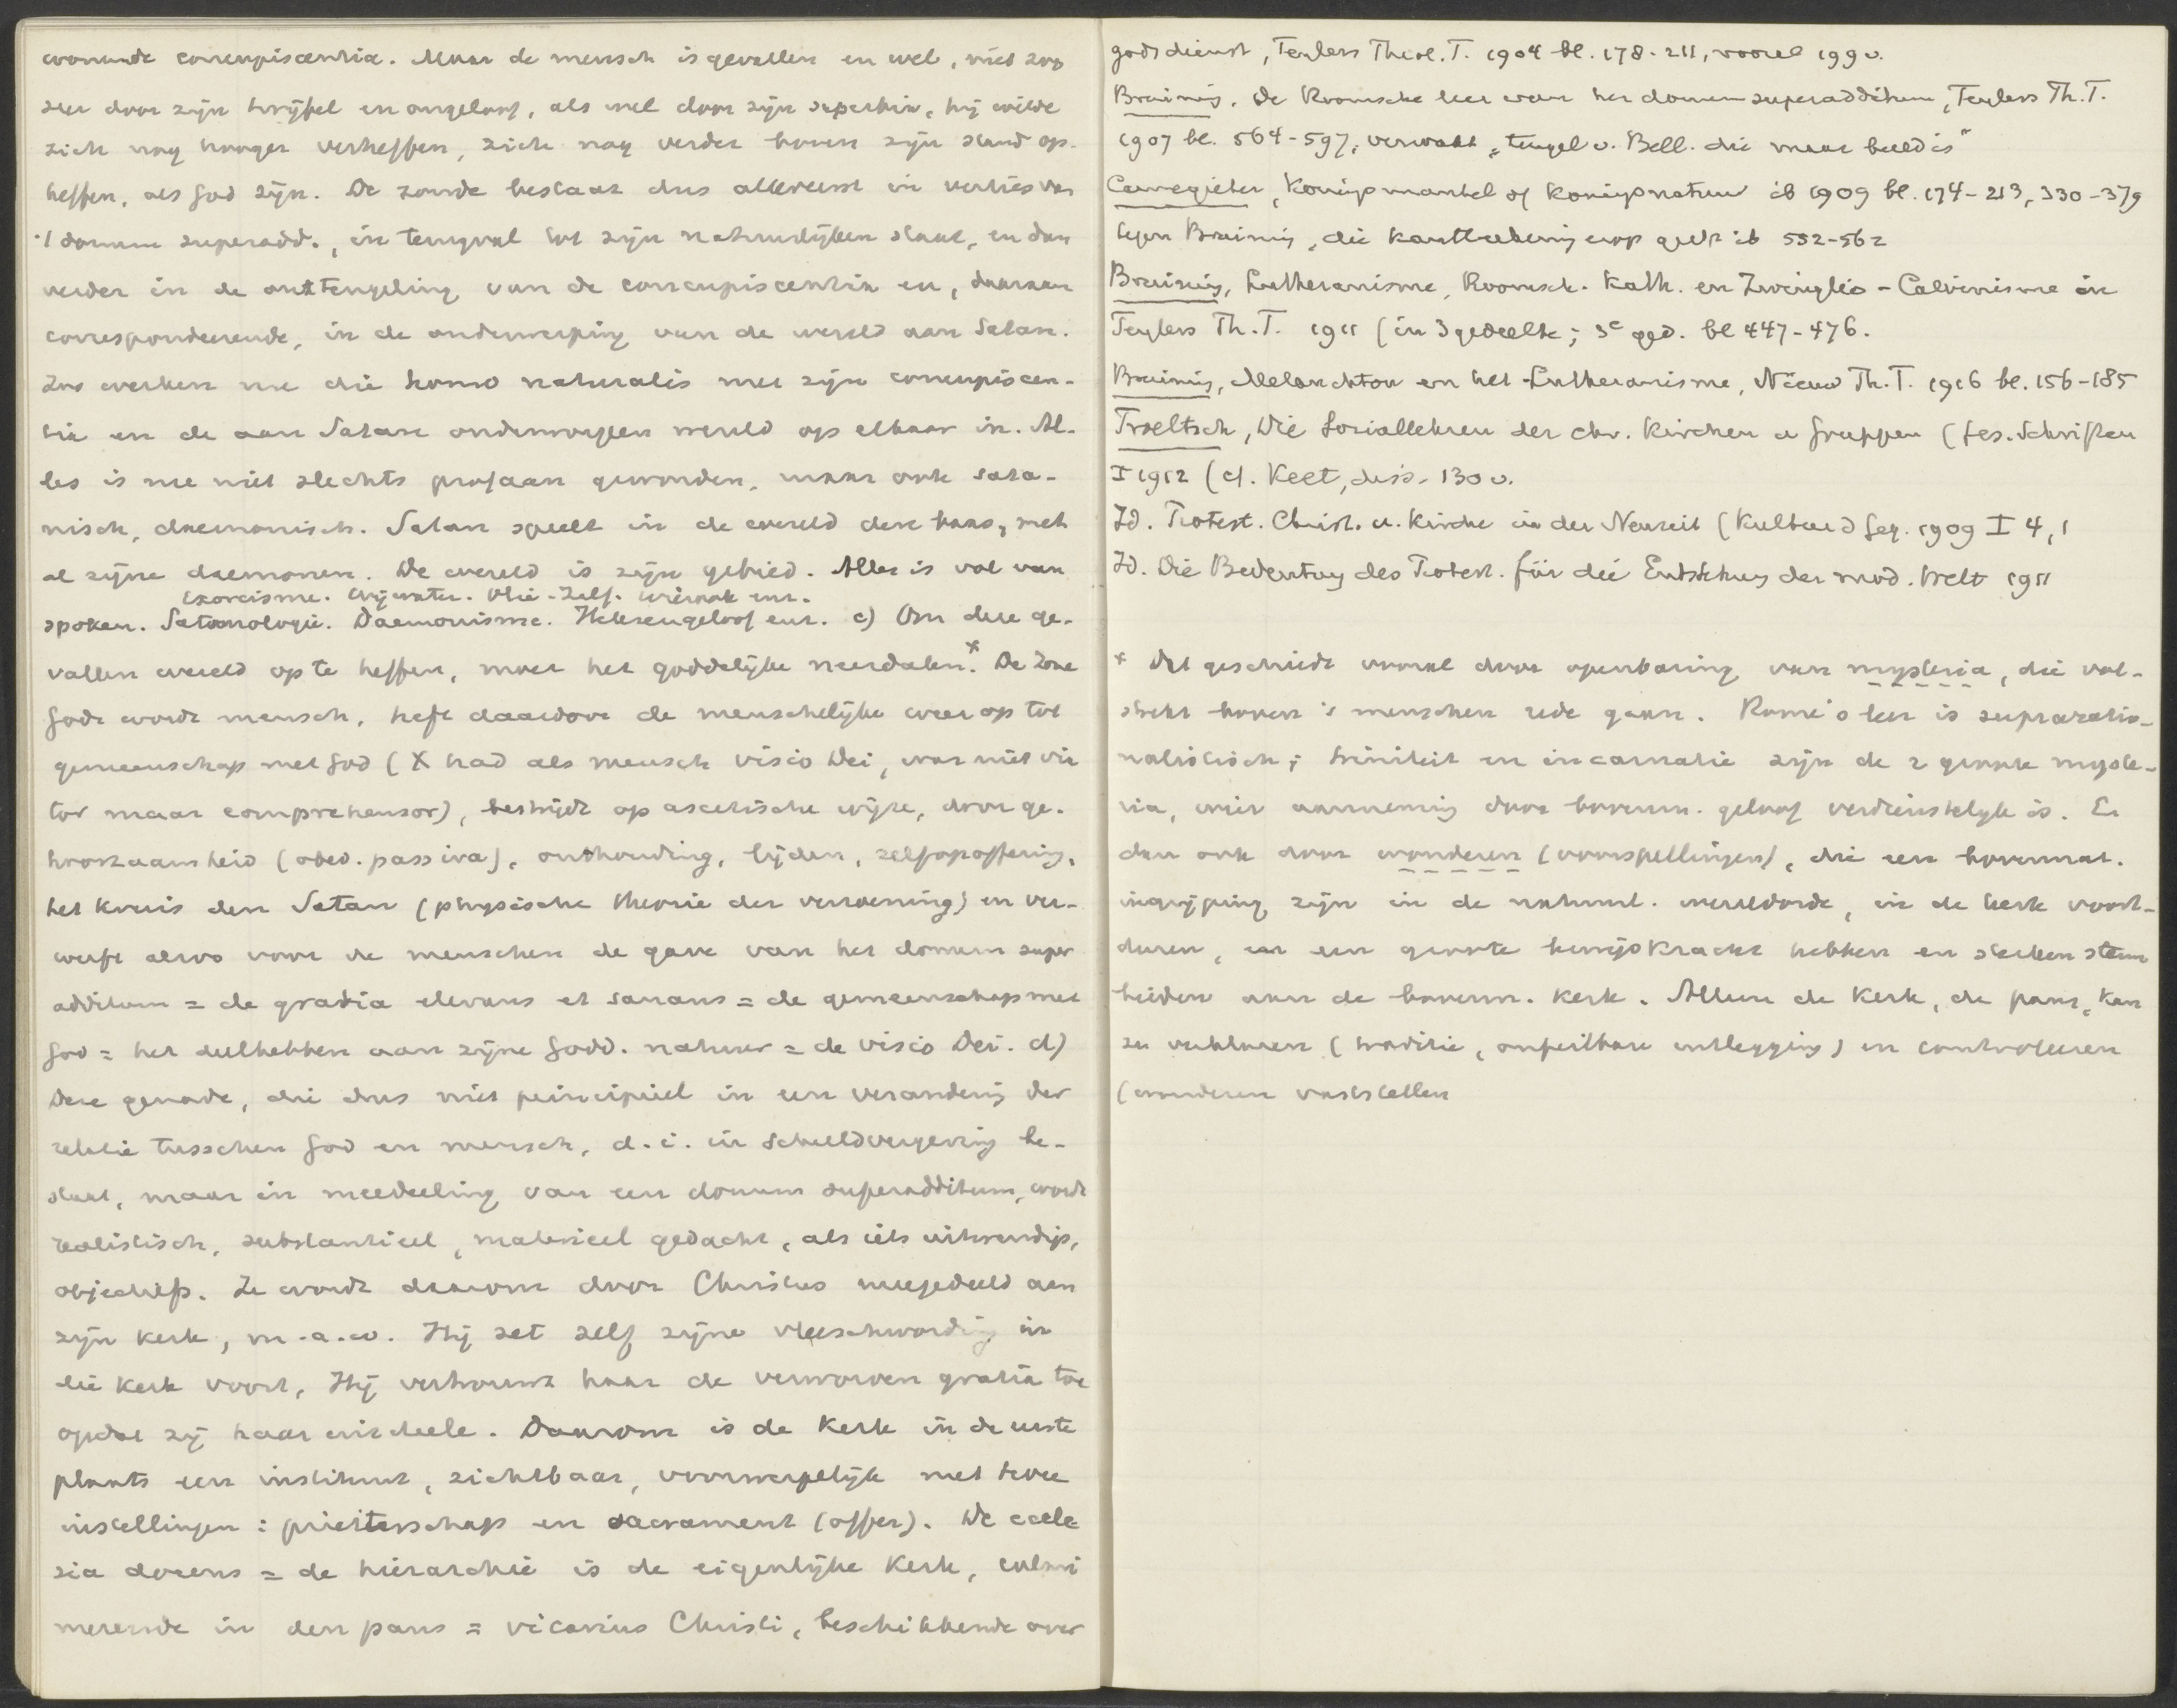 wonende concupiscentia. Maar de mensch is gevallen en wel, niet zoo
zeer door zijn twijfel en ongeloof, als wel door zijn superbia, hij wilde
zich nog hooger verheffen, zich nog verder boven zijn stand op-
heffen, als God zijn. De zonde bestaat dus allereerst in verlies van
't donum superadd., in terugval tot zijn natuurlijken staat, en dan
verder in de ontteugeling van de concupiscentia en, daaraan
correspondeerende, in de onderwerping van de wereld aan Satan.
Zoo werken nu die homo naturalis met zijn concupiscen-
tia en de aan Satan onderworpen wereld op elkaar in. Al-
les is nu niet slechts profaan geworden, maar ook sata-
nisch, daemonisch. Satan speelt in de wereld den baas, met
al zijne daemonen. De wereld is zijn gebied. Alles is vol van
Exorcisme. Wijwater. Olie-Zalf. Wierook enz.
spoken. Satanologie. Daemonisme. Heksengeloof enz. c) Om deze ge-
vallen wereld op te heffen, moet het goddelijke neerdalen.* De Zone
Gods wordt mensch, heft daardoor de menschelijke weer op tot
gemeenschap met God (X had als mensch visio Dei, was niet via
tor maar comprehensor), bestrijdt op ascetische wijze, door ge-
hoorzaamheid (obed. passiva), onthouding, lijden, zelfopoffering,
het kruis den Satan (physische theorie der verzoening) en ver-
werft alzoo voor de menschen de gave van het donum super
additum = de gratia elevans et sanans = de gemeenschap met
God = het deelhebben aan zijne Godd. natuur = de visio Dei. d)
Deze genade, die dus niet principieel in een verandering der
relatie tusschen God en mensch, d.i. in schuldvergeving be-
staat, maar in meedeeling van een donum superadditum, wordt
realistisch, substantieel, materieel gedacht, als iets uitwendigs,
objectiefs. Ze wordt daarom door Christus meegedeeld aan
zijn kerk, m.a.w. Hij zet zelf zijne vleeschwording in
die kerk voort, Hij vertrouwt haar de verworven gratia toe
opdat zij haar uitdeele. Daarom is de Kerk in de eerste
plaats een instituut, zichtbaar, voorwerpelijk met twee
instellingen: priesterschap en sacrament (offer). De eccle
sia docens = de hiërarchie is de eigenlijke Kerk, culmi
neerende in den paus = vicarius Christi, beschikkende over
godsdienst, Teylers Theol. T. 1904 bl. 178-211, vooral 199 v.
Bruining, De Roomsche leer van het donum superadditum, Teylers Th.T.
1907 bl. 564-597, verwaarl. "teugel v. Bell. die maar beeld is"
Cannegieter, Koningsmantel of Koningsnatuur ib 1909 bl. 174-213, 330-379
tegen Bruining, die kantteekening erop geeft ib 552-562
Bruining, Lutheranisme, Roomsch-Kath. en Zwinglio-Calvinisme in
Teylers Th.T. 1911 (in 3 gedeelte; 3e ged. bl 447-476.
Bruining, Melanchton en het Lutheranisme, Nieuw Th.T. 1916 bl. 156-185
Troeltsch, Die Soziallehren der chr. Kirchen u Gruppen (Ges. Schriften
I 1912 (cf. Keet, diss. 130 v.
Id. Protest. Christ. u. Kirche in der Neuzeit (Kultur d Geg. 1909 I 4,1
Id. Die Bedeutung des Protest. für die Entstehung der mod. Welt 1911
* Dit geschiedt vooral door openbaring van mysteria, die vol-
strekt boven 's menschen rede gaan. Rome's leer is supraratio-
nalistisch; triniteit en incarnatie zijn de 2 groote myste-
ria, wier aanneming door bovenn. geloof verdienstelijk is. En
dan ook door wonderen (voorspellingen), die een bovennat.
ingrijping zijn in de natuurl. wereldorde, in de kerk voort-
duren, en een groote bewijskracht hebben en
heiden aan de bovenn. Kerk. Alleen de Kerk, de paus, kan
ze verklaren (traditie, onfeilbare uitlegging) en controleeren
(wonderen vaststellen